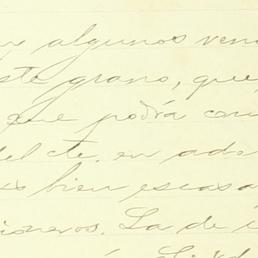 y algunos ven
ste grano, que
que podía con
del cte. en ade
s bien escasa
sioneros. La de